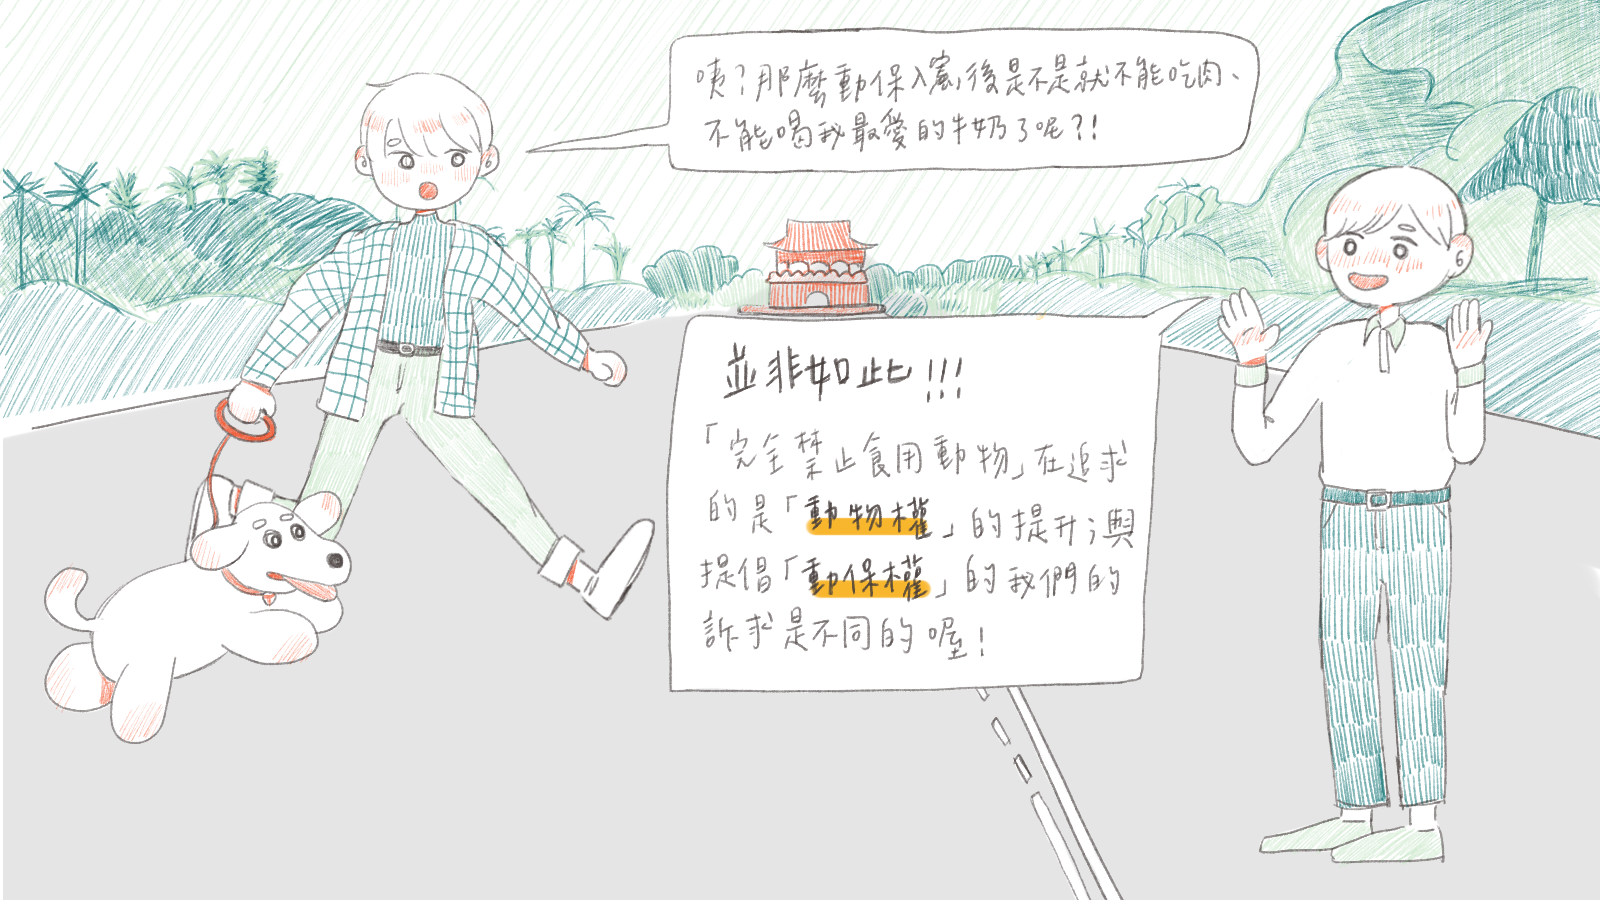 咦?那麼動保入憲後是不是就不能吃肉、
不能喝我最愛的牛奶了呢?!
並非如此!!!
「完全禁止食用動物」在追求
的是「動物權」的提升;與
提倡「動保權」的我們的
訴求是不同的喔!